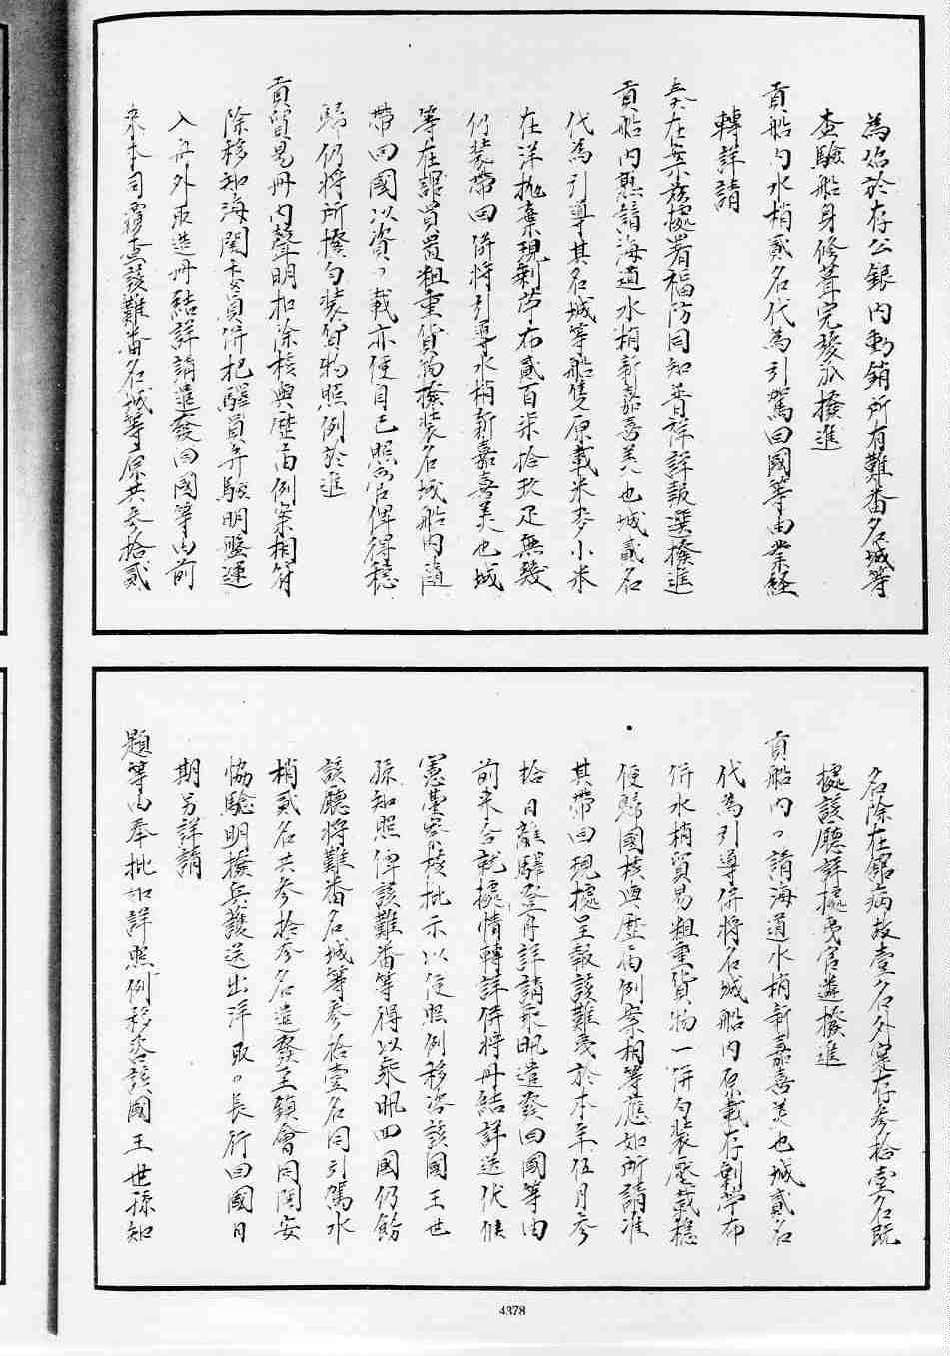 為照於存公銀內動銷所有難番名城等
查驗船身修葺完發派撥進
貢船勻水梢貳名代為引駕回國等由業經
轉詳請
奏在案茲據署福防同知普祥詳報選撥進
貢船內熟諳海道水梢新嘉喜美也城貳名
代為引導其名城等船隻原載米麥小米
在洋拋棄現剩苧布貳百柒拾玖疋無幾
仍裝帶回併將引導水梢新嘉喜美也城
等在課買置粗重貨物撥裝名城船內隨
帶回國以資〻載亦便目已照寄官俾得穩
歸仍將所撥勻裝貨物照例於進
貢貿易冊內聲明扣除核與歷甫例案相符
除移知海關委員併把驛員弁驗明盤運
入舟外取造冊結詳請遣發回國等由前
來本司覆查該難番名城等原共參拾貳
名除在館病故壹名外寔存參拾壹名既
據該廳詳據夷官遴撥進
貢船內〻諳海道水梢新嘉喜美也城貳名
代為引導併將名城船內原載存剩苧布
併水梢貿易粗重貨物一併勻裝壓載穩
便歸國核與歷甫例案相等應如所請准
其帶回現據呈報該難夷於本年伍月參
拾日離驛登舟詳請乘帆遣發回國等由
前來合就據情轉詳併將冊結詳送伏候
憲臺察核批示以便照例移咨該國王世
孫知照俾該難番等得以乘帆回國仍飭
該廳將難番名城等參拾壹名同引駕水
梢貳名共參拾參名遣發至鎮會同閩安
協驗明撥兵護送出洋取〻長行回國日
期另詳請
題等由奉批如詳照例移咨該國王世孫知
4378